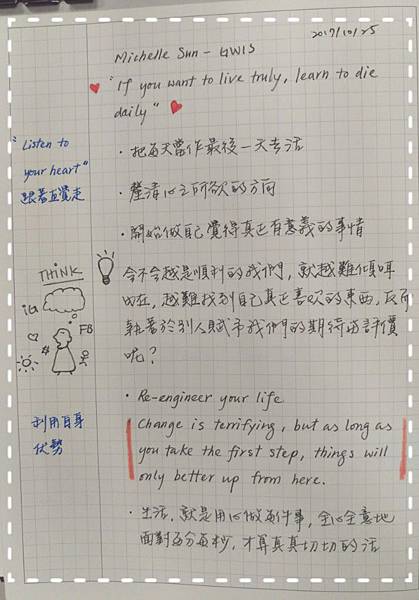 2017/10/25
Michelle Sun - GWIS
"If you want to live truly, learn to die
daily"
"Listen to
your heart"
跟著直覺走
・把每天當作最後一天去活
・釐清心之所欲的方向
・開始做自己覺得真正有意義的事情
THINK
IG
FB
会不会越是順利的我們,就越難傾耳
越難找到自己真正喜欢的東西,反而
執著於別人賦予我們的期待或評價
呢?
・Re-engineer your life
利用自身
优勢
Change is terrifying, but as long as
you take the first step, things will
only better up from here.
・生活,就是用心做每件事,全心全意地
面對每分每秒,才算真真切切的活